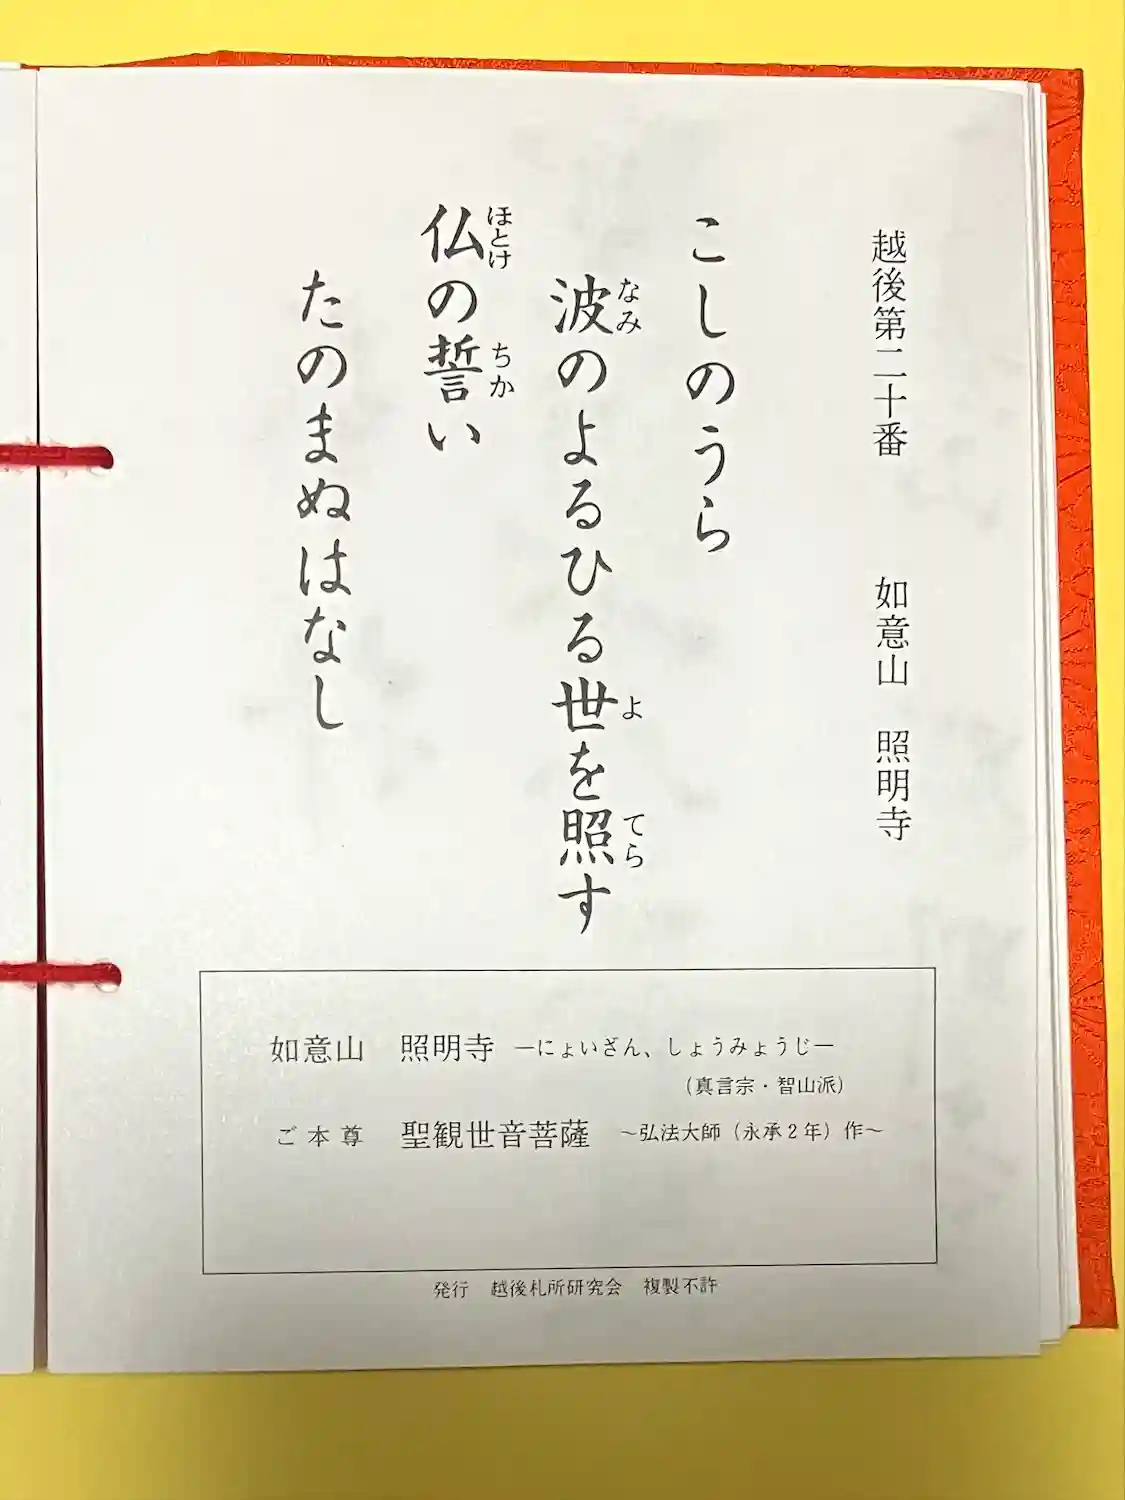 越後第二十番　如意山　照明寺
こしのうら
波のよるひる世を照す
なみ
よ
てら
仏の誓い
ほとけ
ちか
たのまぬはなし
如意山　照明寺　―にょいざん、しょうみょうじ―
（真言宗・智山派）
ご本尊　聖観世音菩薩　～弘法大師（永承２年）作～
発行　越後札所研究会　複製不許